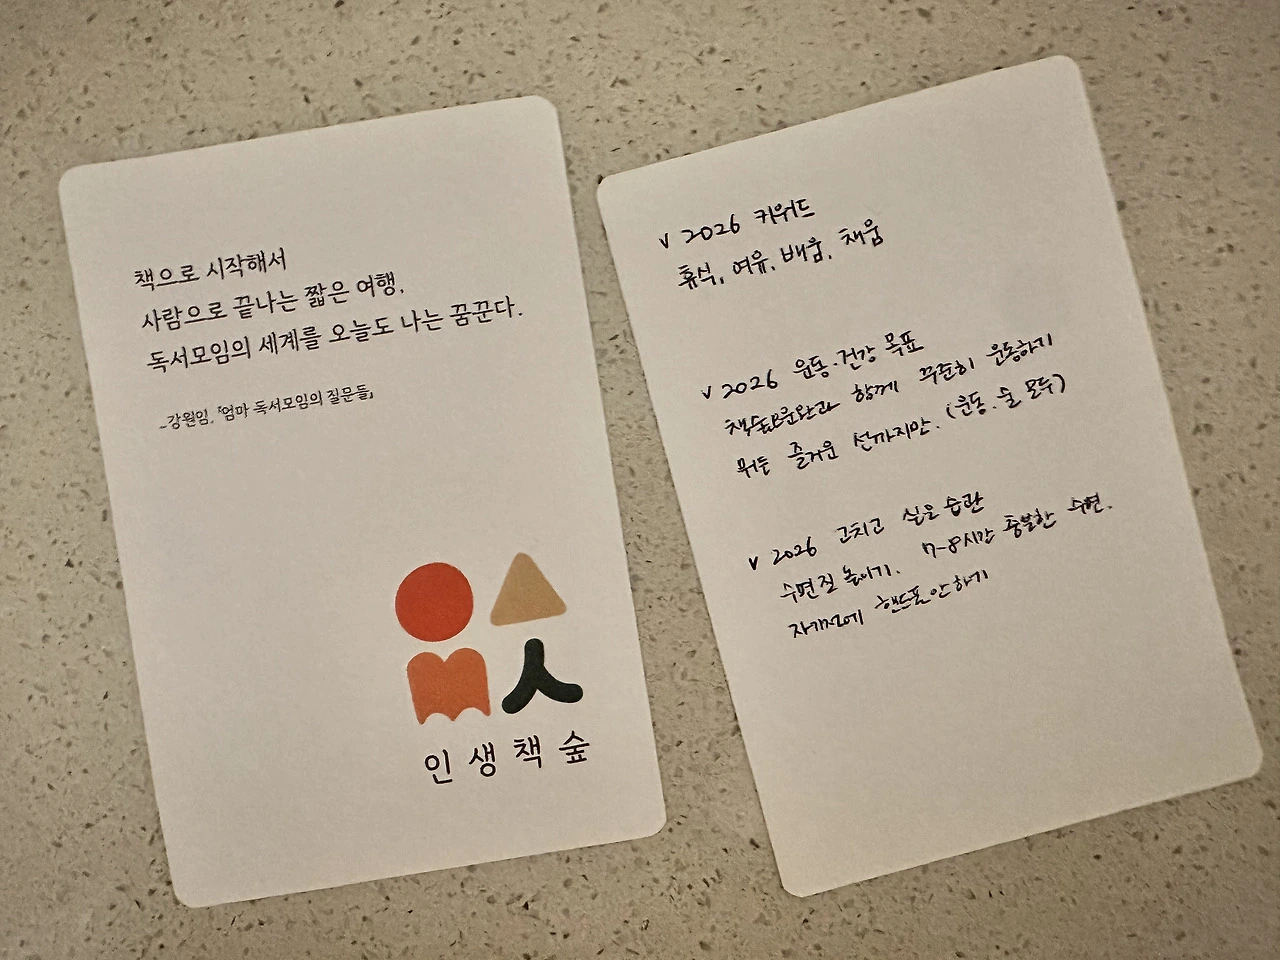 책으로 시작해서
사람으로 끝나는 짧은 여행.
독서모임의 세계를 오늘도 나는 꿈꾼다.
-강원임,『엄마 독서모임의 질문들』
인생책숲
v 2026 키워드
휴식, 여유, 배움, 채움
v 2026 운동·건강 목표
함께 꾸준히 운동하기
뭐든 즐거운 선까지만. (운동, 술 모두)
v 2026 고치고 싶은 습관
수면질 높이기. 7-8시간 충분한 수면.
자기전에 핸드폰 안하기